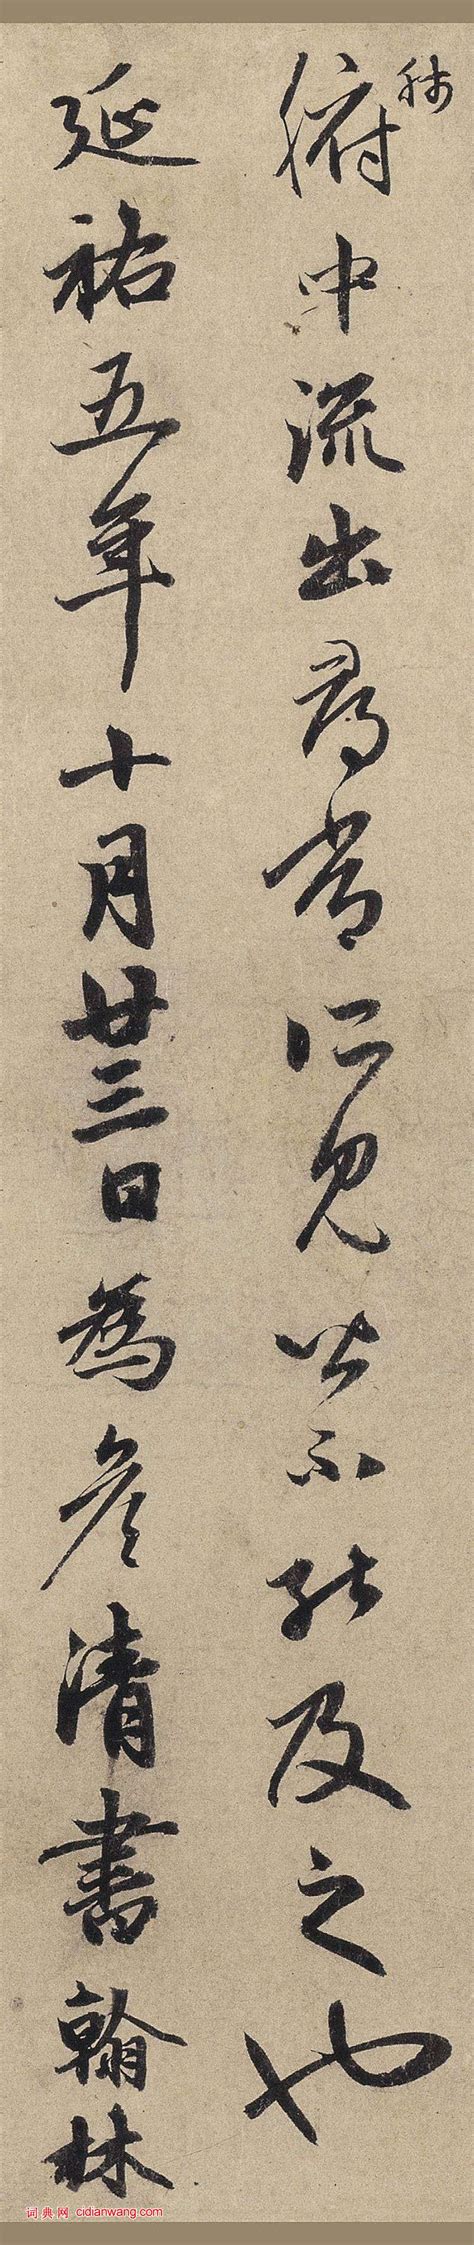 腑中流出尋常所見皆不能及之也
延祐五年十月廿三日為彦清書翰林
词典网 cidianwang.com